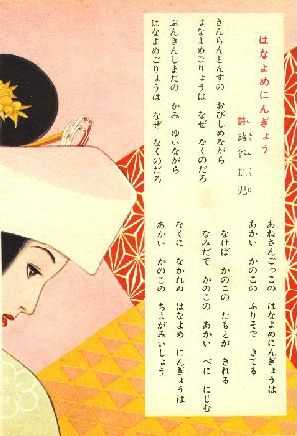 はなよめにんぎょう
きんらんどんすの おびしめながら
はなよめごりょうは なぜ なくのだろ
ぶんきんしまだの かみ ゆいながら
はなよめごりょうは なぜ なくのだろ
あねさんごっこの はなよめにんぎょうは
あかい かのこの ふりそで きてる
なけば かのこの たもとが きれる
なみだで かのこの あかい べに にじむ
なくに なかれぬ はなよめ にんぎょうは
あかい かのこの ちよがみいしょう